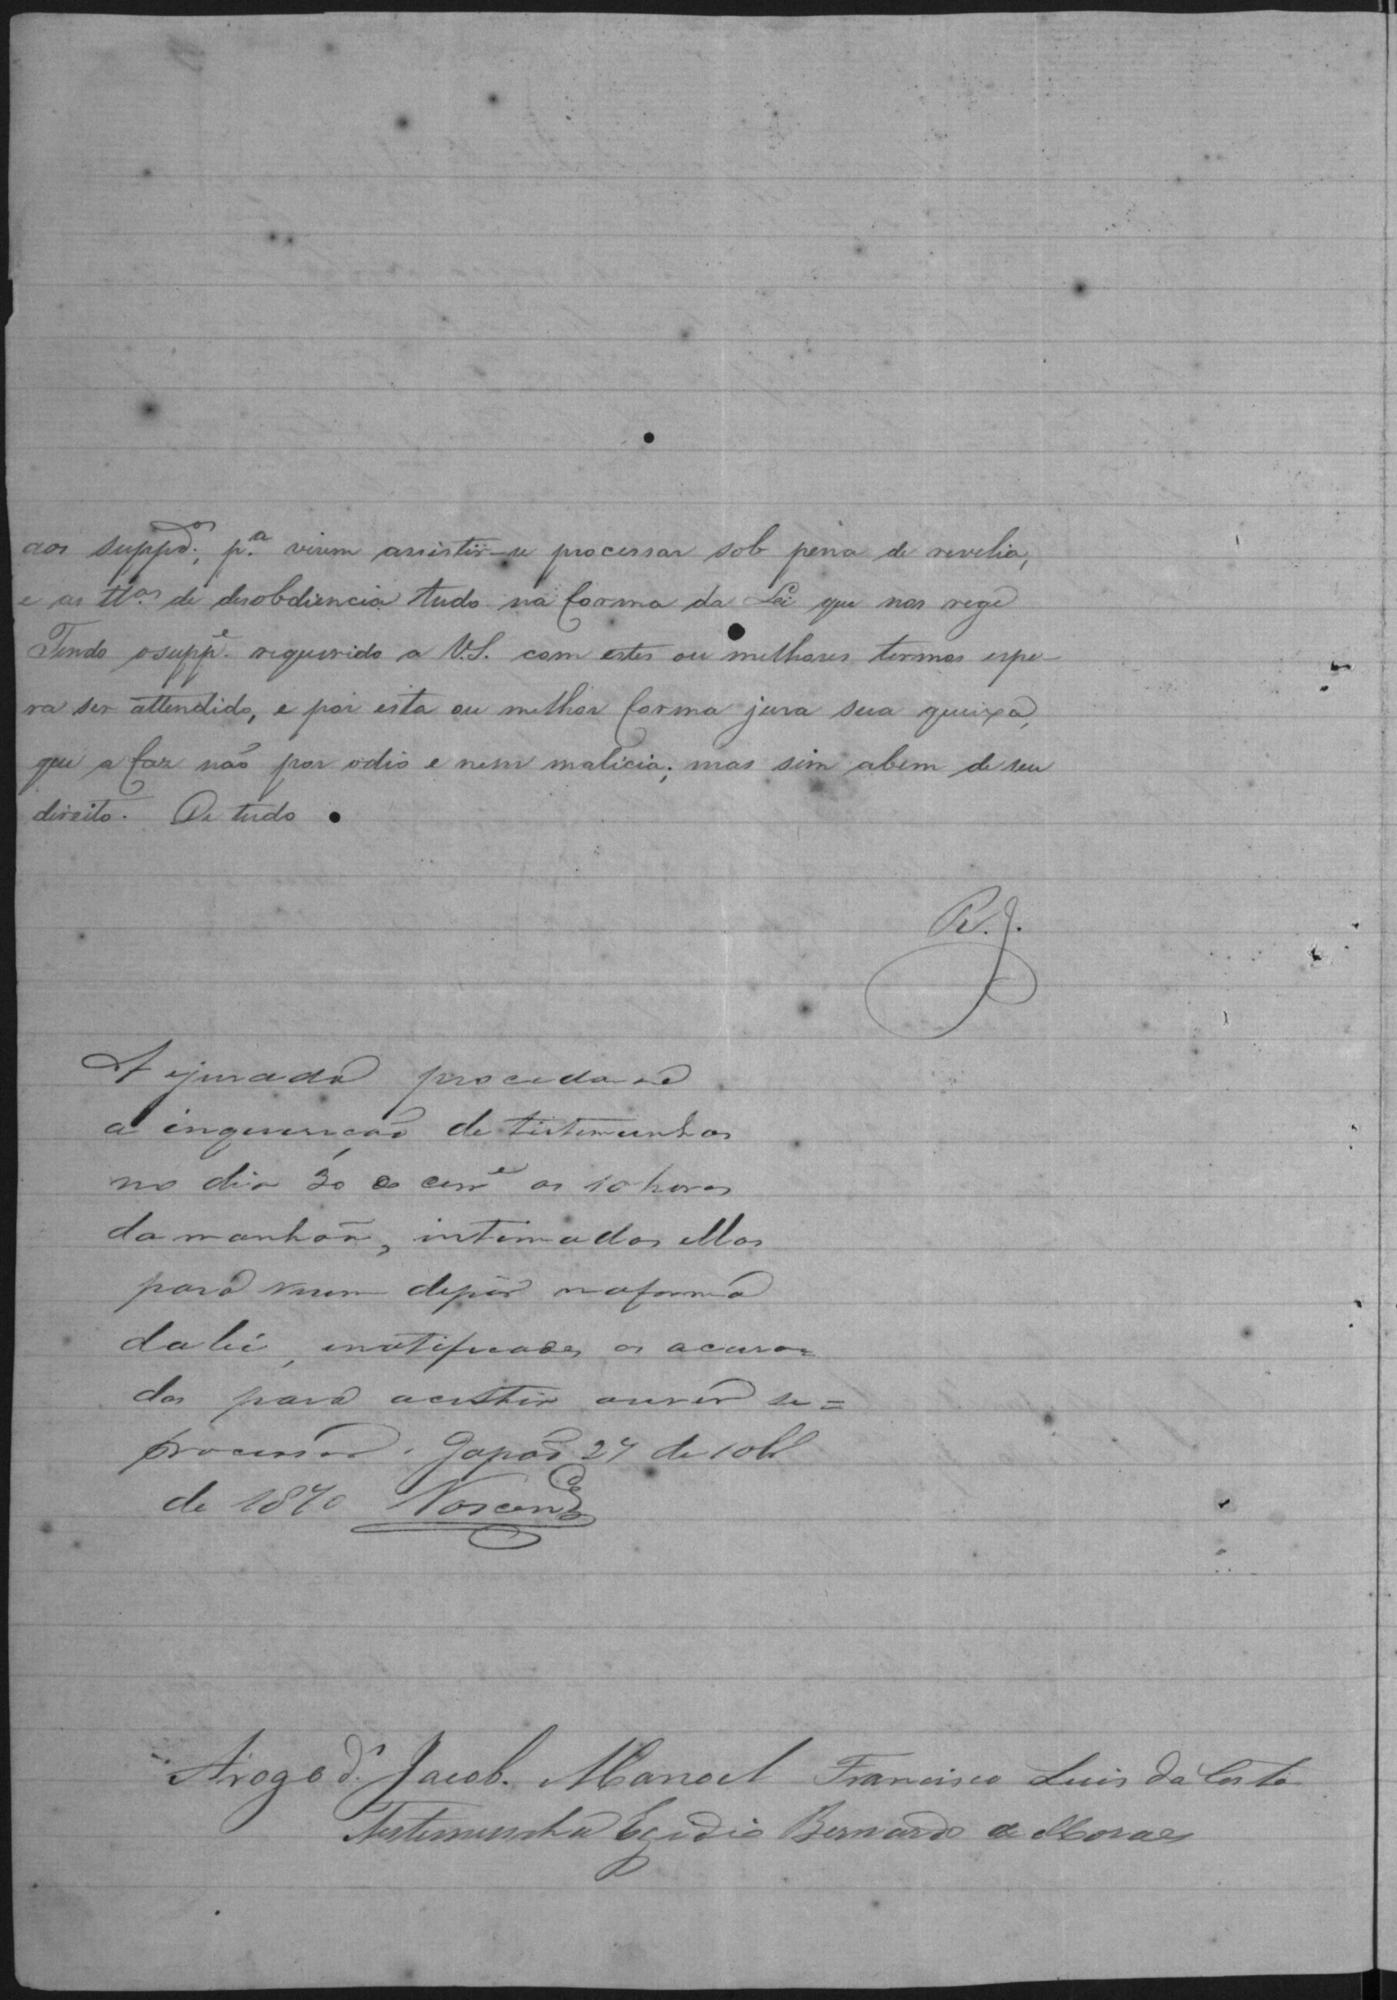 aos suppd.os, p.a virem assistir-se processar sob pena de revelia,
e as tt.as de desobdiencia tudo na forma da Lei que nos rege
Tendo o supp.e requerido a V.S. com estes ou melhores termos espe-
ra ser attendido, e por esta ou melhor forma jura sua queixa,
que a faz não por odio e nem malicia; mas sim abem de seu
direito. De tudo
R. J.
A ejurada proceda-se
a inquirição de testemunhas
no dia 30 do corr.e as 10 horas
da manhãa, intimadas ellas
para virem depôr na forma
da lei, enotificados os acusa=
dos para acistir averem se=
processar. Japão 27 de 10br.
de 1870
Arogo d. Jacob. Manoel Francisco Luis da Costa
Testemunha Egidio Bernardo de Moraes